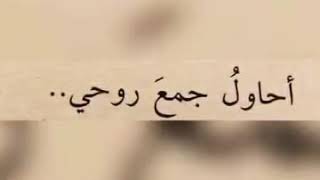 أحاولُ جمعَ روحي..